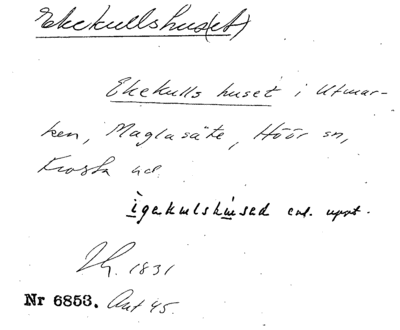 Ekekullshus(et)
Ekekulls huset i Utmar-
ken, Maglasäte, Höör sn,
Frosta hd.
igekulshused enl. uppt.
1831
Nr 6853. Ant 45.